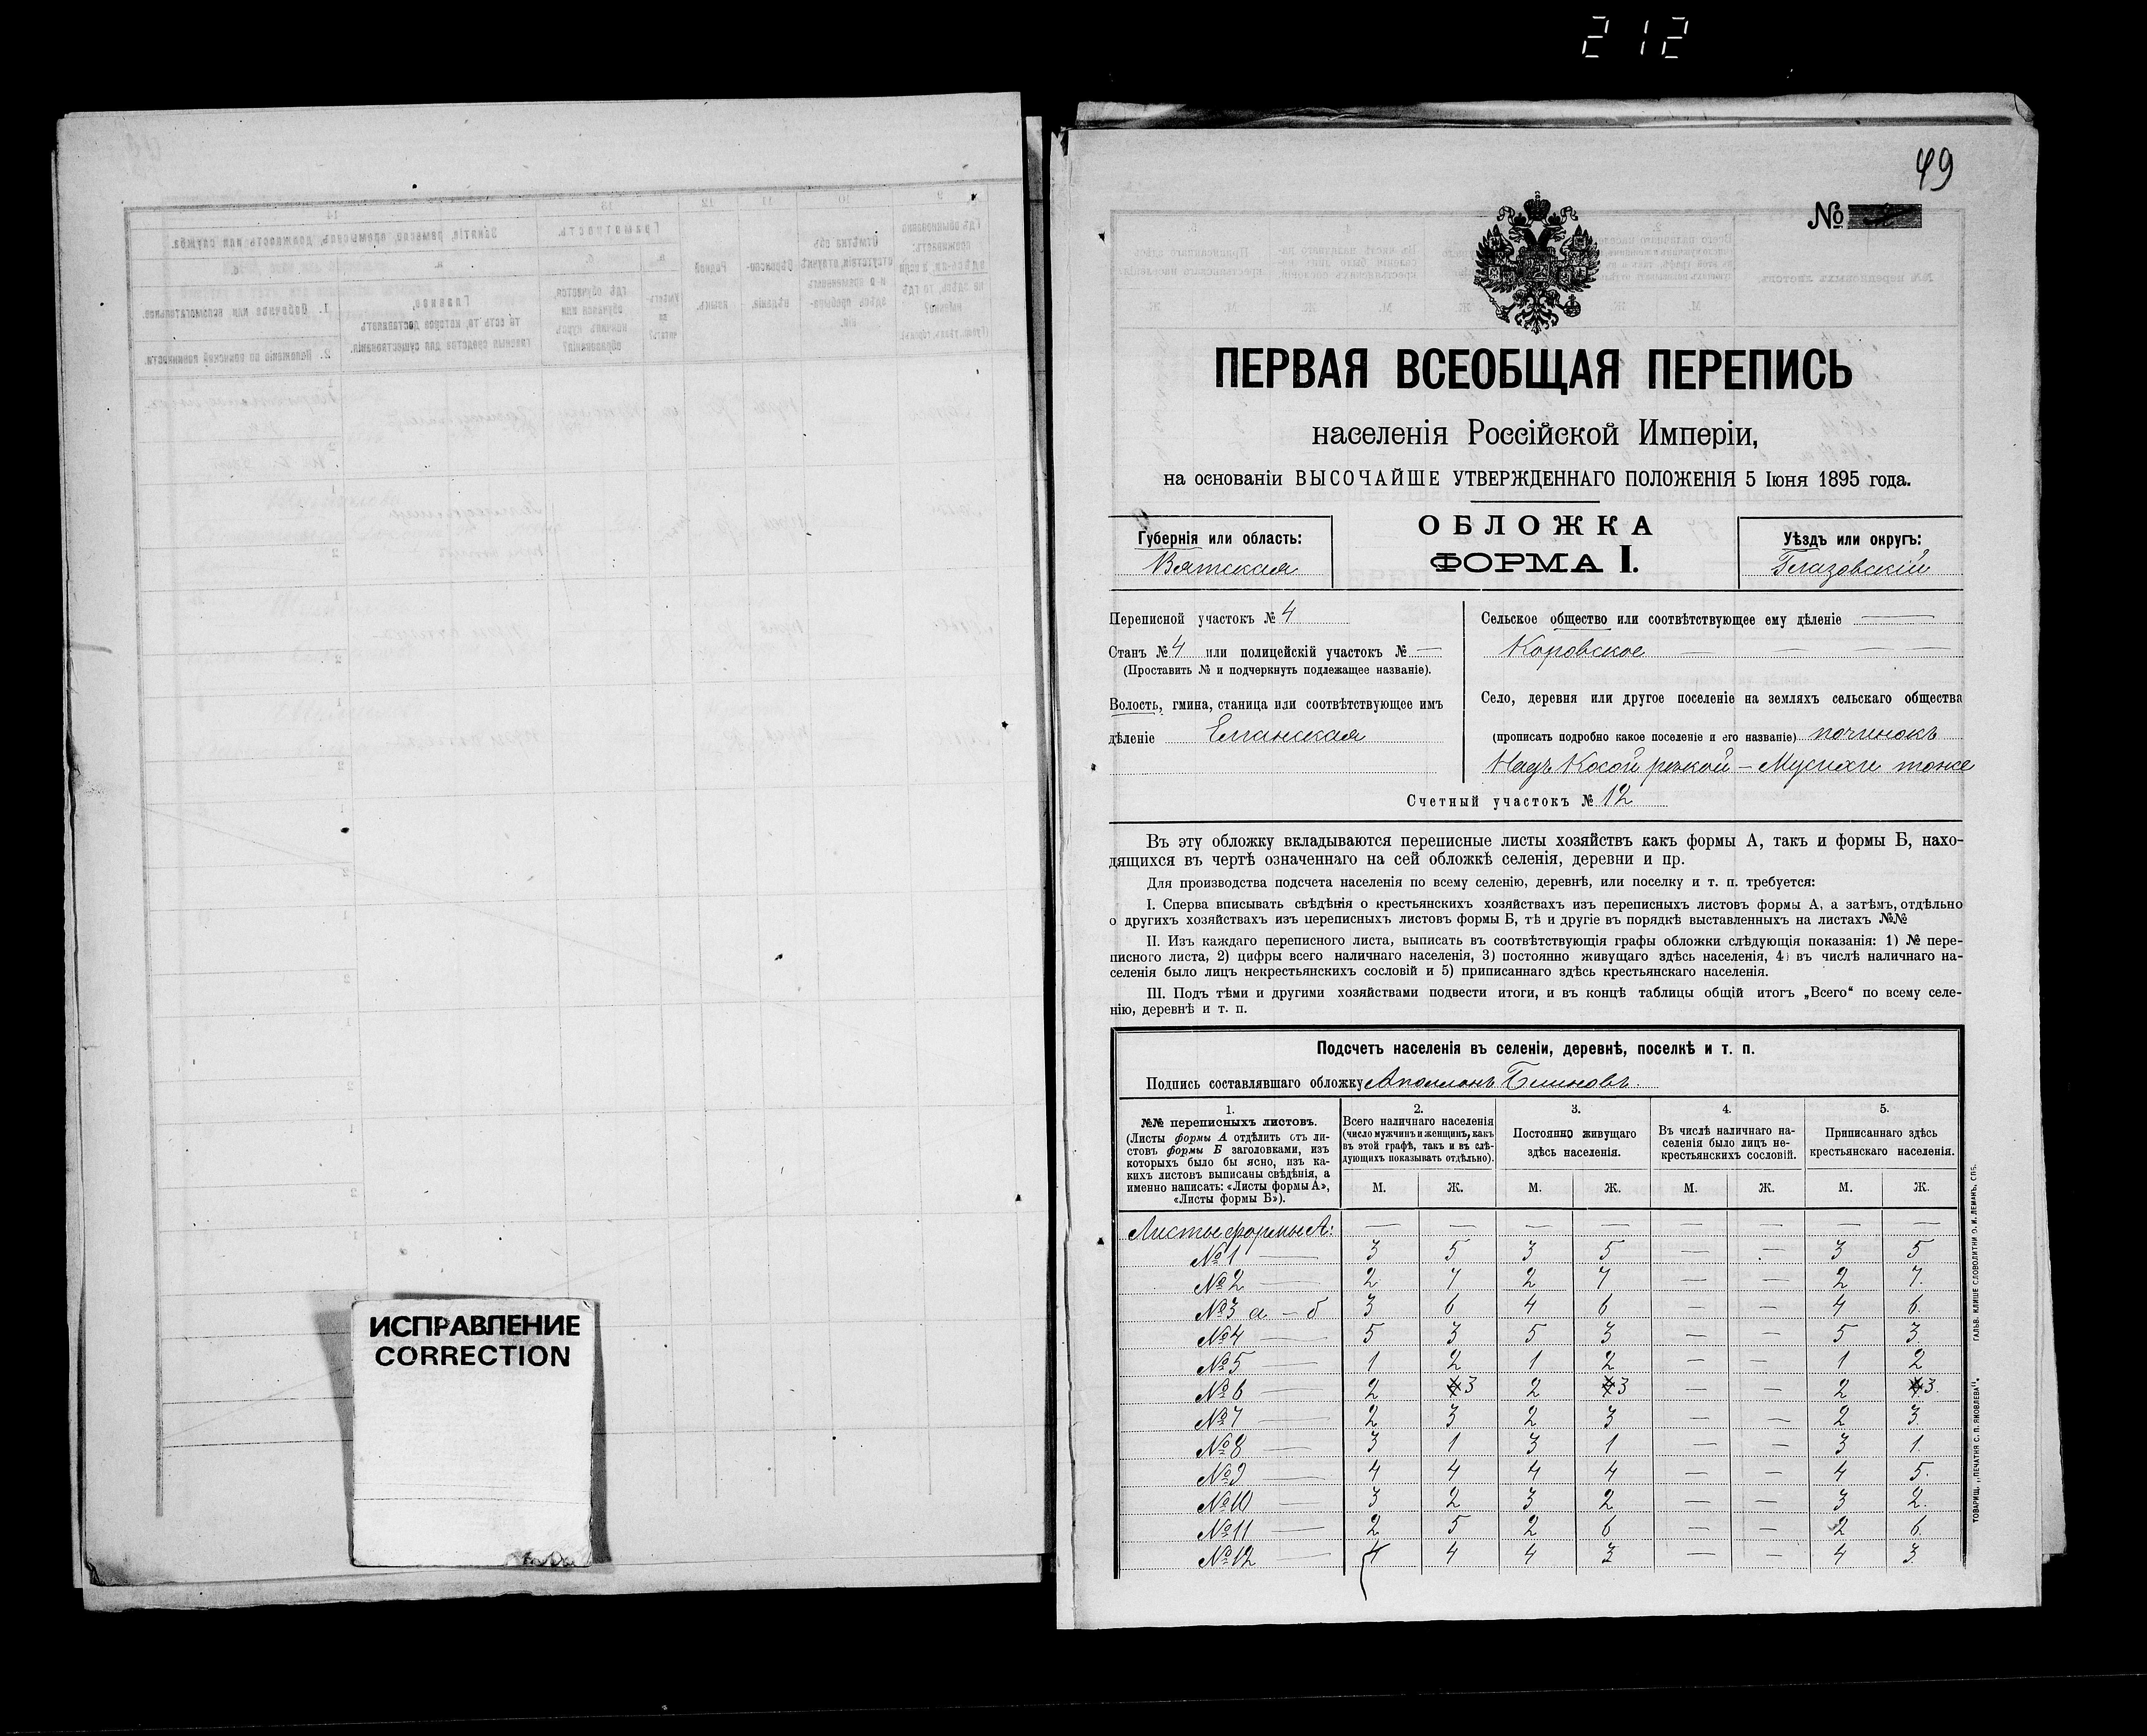 212
49
№
ПЕРВАЯ ВСЕОБЩАЯ ПЕРЕПИСЬ
населенія Россійской Имперіи,
на основаніи ВЫСОЧАЙШЕ УТВЕРЖДЕННАГО ПОЛОЖЕНІЯ 5 Іюня 1895 года.
ОБЛОЖКА
ФОРМА I.
Губернія или область:
Вятская
Уѣздъ или округъ:
Глазовскій
Переписной участокъ № 4
Станъ № 4 или полицейскій участокъ № —
(Проставить № и подчеркнуть подлежащее названіе).
Волость, гмина, станица или соотвѣтствующее имъ
дѣленіе Еланская
Сельское общество или соотвѣтствующее ему дѣленіе —
Коровское — — — —
Село, деревня или другое поселеніе на земляхъ сельскаго общества
(прописать подробно какое поселеніе и его названіе) починокъ
Надъ Косой рѣчкой – Мусихи тоже
Счетный участокъ № 12
Въ эту обложку вкладываются переписные листы хозяйствъ какъ формы А, такъ и формы Б, нахо-
дящихся въ чертѣ означеннаго на сей обложкѣ селенія, деревни и пр.
Для производства подсчета населенія по всему селенію, деревнѣ, или поселку и т. п. требуется:
I. Сперва вписывать свѣдѣнія о крестьянскихъ хозяйствахъ изъ переписныхъ листовъ формы А, а затѣмъ, отдѣльно
о другихъ хозяйствахъ изъ переписныхъ листовъ формы Б, тѣ и другіе въ порядкѣ выставленныхъ на листахъ №№
II. Изъ каждаго переписного листа, выписать въ соотвѣтствующія графы обложки слѣдующія показанія: 1) № пере-
писного листа, 2) цифры всего наличнаго населенія, 3) постоянно живущаго здѣсь населенія, 4) въ числѣ наличнаго на-
селенія было лицъ некрестьянскихъ сословій и 5) приписаннаго здѣсь крестьянскаго населенія.
III. Подъ тѣми и другими хозяйствами подвести итоги, и въ концѣ таблицы общій итогъ „Всего“ по всему селе-
нію, деревнѣ и т. п.
Подсчетъ населенія въ селеніи, деревнѣ, поселкѣ и т. п.
Подпись составлявшаго обложку Аполлонъ Блиновъ.
1.
№№ переписныхъ листовъ.
(Листы формы А отдѣлить отъ ли-
стовъ формы Б заголовками, изъ
которыхъ было бы ясно, изъ ка-
кихъ листовъ выписаны свѣдѣнія, а
именно написать: «Листы формы А»,
«Листы формы Б»).
2.
Всего наличнаго населенія
(число мужчинъ и женщинъ, какъ
въ этой графѣ, такъ и въ слѣ-
дующихъ показывать отдѣльно).
3.
Постоянно живущаго
здѣсь населенія.
4.
Въ числѣ наличнаго на-
селенія было лицъ не-
крестьянскихъ сословій.
5.
Приписаннаго здѣсь
крестьянскаго населенія.
М. Ж. М. Ж. М. Ж. М. Ж.
Листы формы А: — — — — — — — —
№ 1 — 3 5 3 5 — — 3 5
№ 2 — 2 7 2 7 — — 2 7.
№ 3 а – б 3 6 4 6 — — 4 6.
№ 4 — 5 3 5 3 — — 5 3.
№ 5 — 1 2 1 2 — — 1 2
№ 6 — 2 3 2 3 — — 2 3.
№ 7 — 2 3 2 3 — — 2 3.
№ 8 — 3 1 3 1 — — 3 1.
№ 9 — 4 4 4 4 — — 4 5.
№ 10 — 3 2 3 2 — — 3 2.
№ 11 — 2 5 2 6 — — 2 6.
№ 12 — 4 4 4 3 — — 4 3.
ТОВАРИЩ. „ПЕЧАТНЯ С. П. ЯКОВЛЕВА“. ГАЛЬВ. КЛИШЕ СЛОВОЛИТНИ О. И. ЛЕМАНЪ, СПБ.
ИСПРАВЛЕНИЕ
CORRECTION